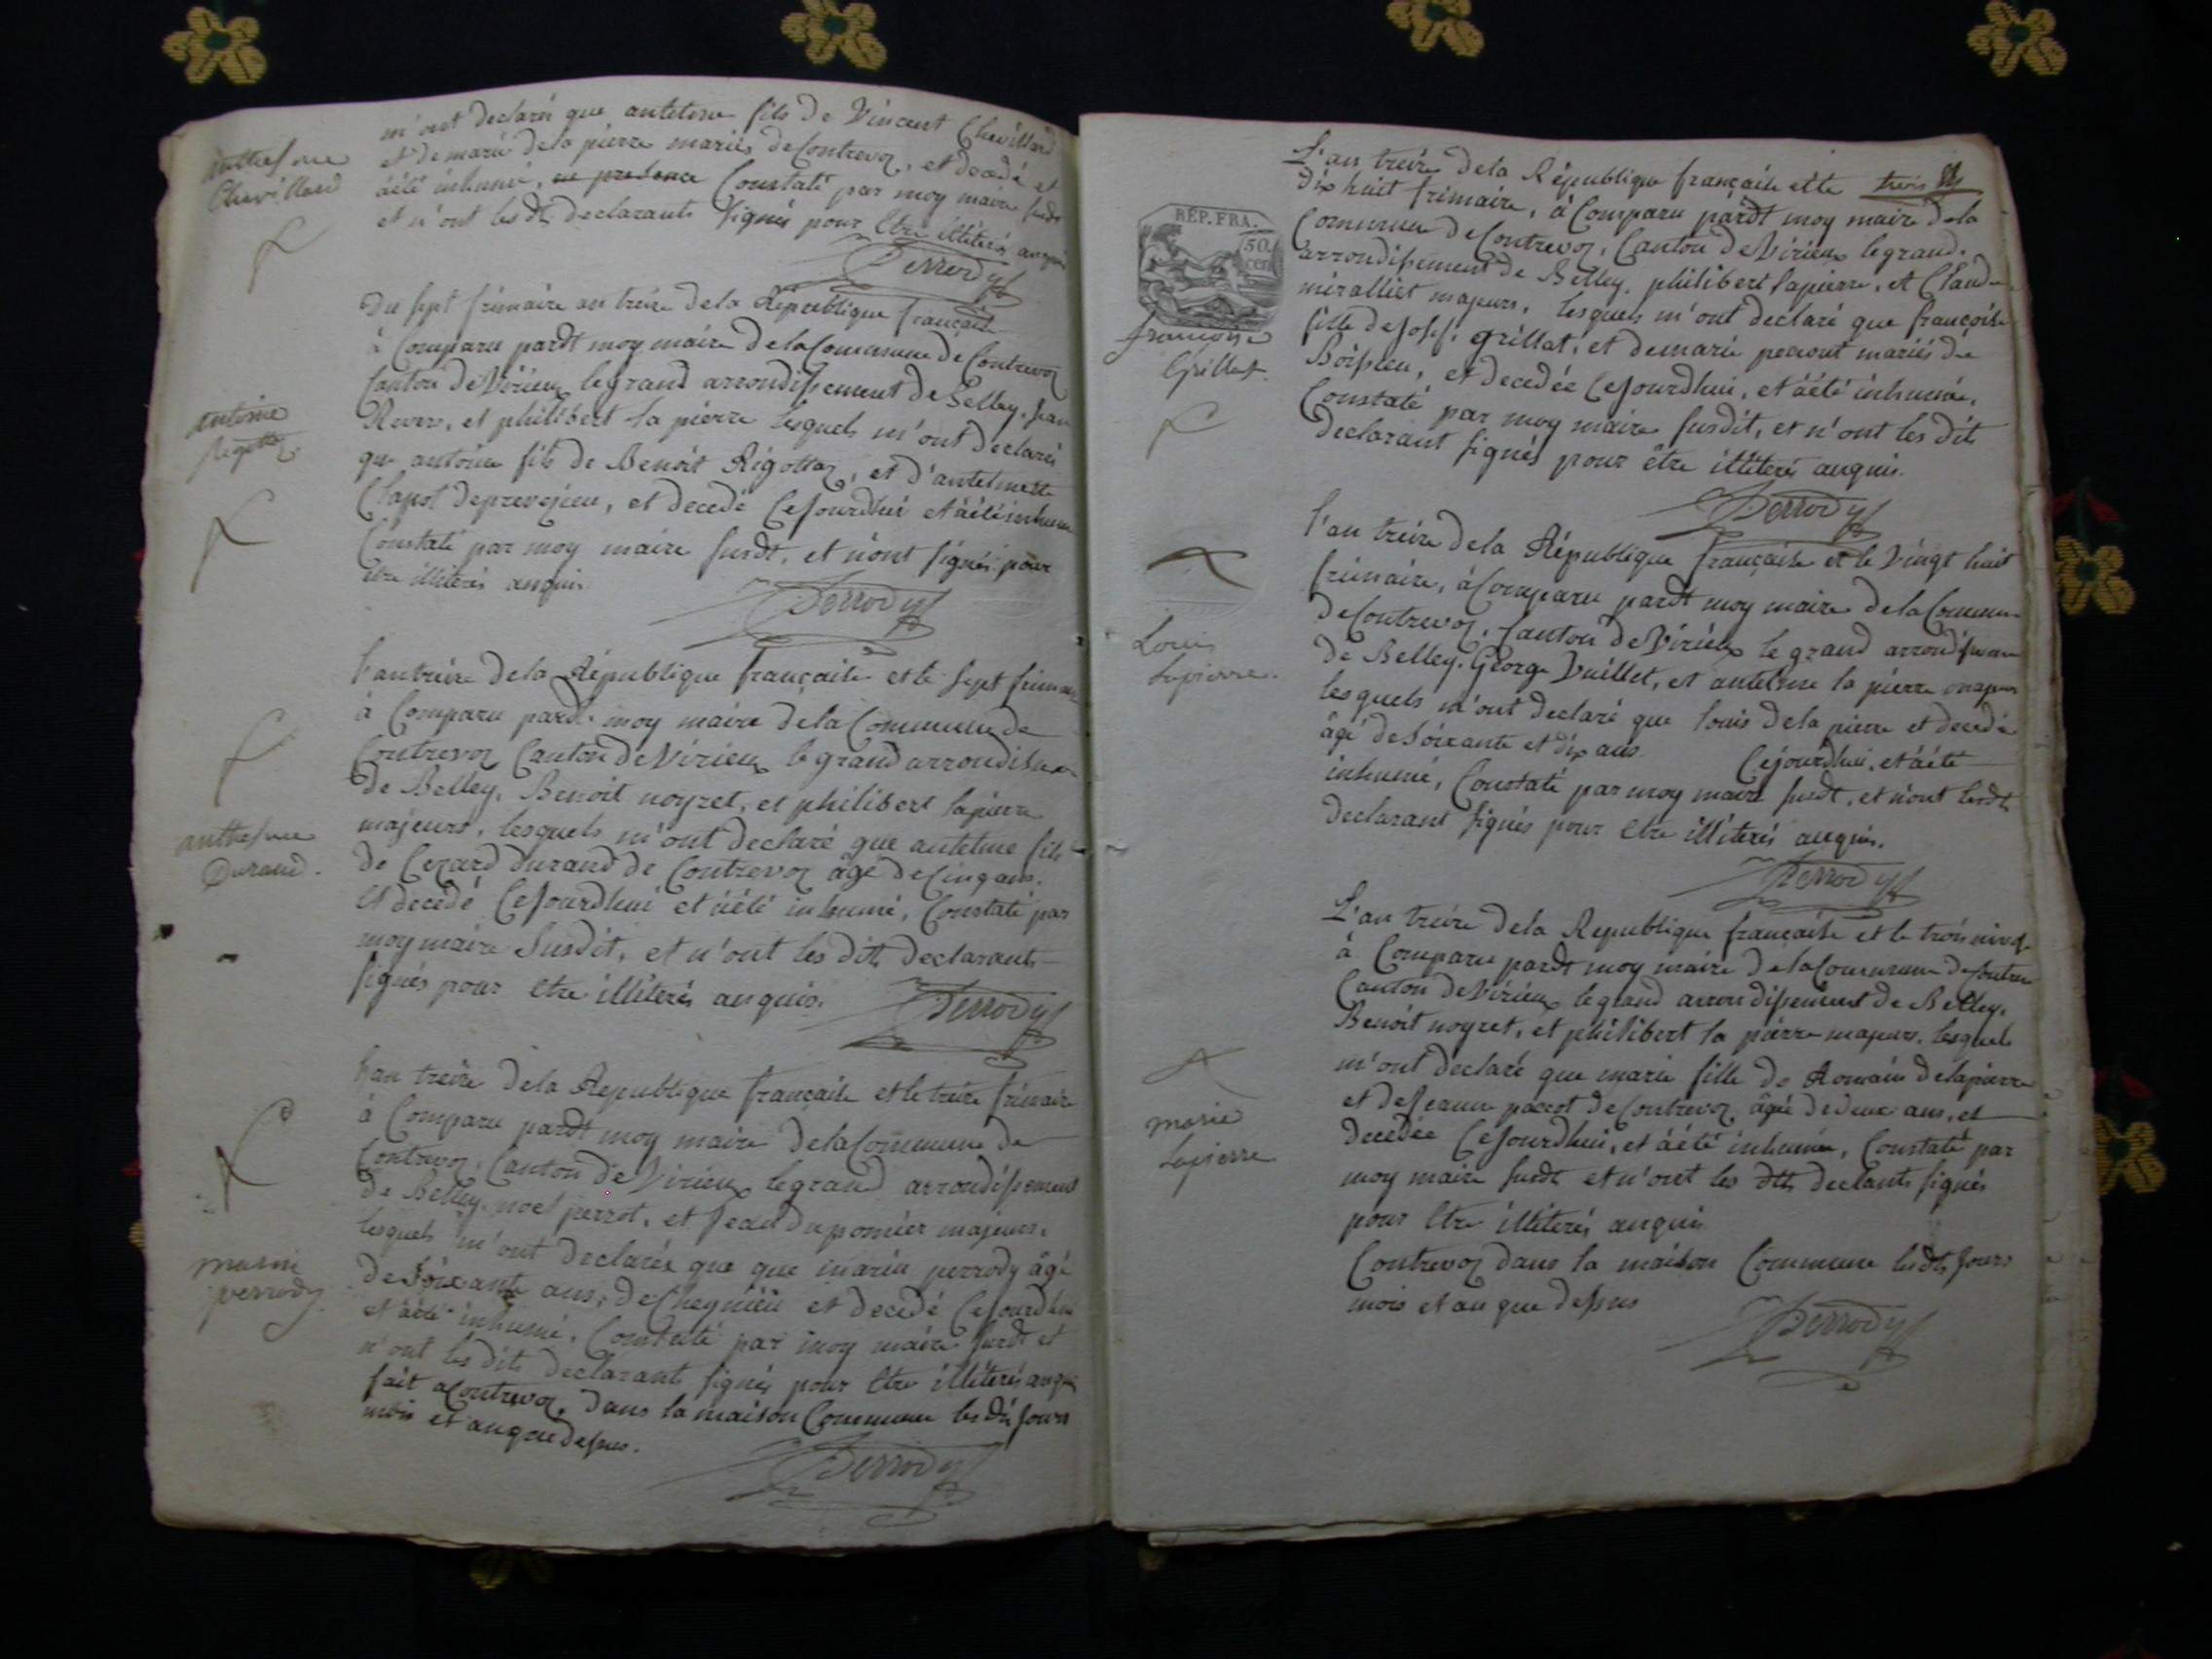 m'ont declaré que antelme fils de Vincent Chevillard
et de marie dela pierre mariés de Contrevoz, et decedé et
àété inhumé, en presence Constaté par moy maire susdt
et n'ont lesdt declarants signés pour être illiterés anquis
anthelme
Chevillard
Perrody
Du sept frimaire an treize dela République française
à Comparu pardt moy maire dela Commune de Contrevoz
Canton de Virieux legrand arrondissement de Belley. jean
et philibert la pierre lesquels m'ont declarés
que antoine fils de Benoit Rigottaz, et d'antelmette
Clapot deprevejieu, et decedé Cejourdhui et àété inhumé
Constaté par moy maire susdt, et n'ont signés pour
être illiterés anquis
antoine
Rigottaz
Perrody
l'an treize dela République française et le sept frimaire
à Comparu pardt moy maire dela Commune de
Contrevoz Canton de Virieux legrand arrondissem
de Belley, Benoit noyret, et philibert lapierre
majeurs, lesquels m'ont declaré que antelme fils
de Cezard Durand de Contrevoz âgé de Cinq ans.
et decedé Cejourdhui et àété inhumé, Constaté par
moy maire Susdit, et n'ont les dits declarants
signés pour être illiterés anquis.
anthelme
Durand.
Perrody
L'an treize dela République française et le treize frimaire
à Comparu pardt moy maire dela Commune de
Contrevoz, Canton de Virieux legrand arrondissement
de Belley, noel perrot, et jean duponnier majeurs.
lesquels m'ont declarés que que marie perrody âgé
de Soixante ans, de Cheynieu et decedé Cejourdhui
et àété inhumé, Constaté par moy maire susdt et
n'ont les dits declarants signés pour être illiterés anquis
fait a Contrevoz, Dans la maison Commune les dits jours
mois et an que dessus.
marie
perrody
Perrody
L'an treize dela République française et le trois
Dix huit frimaire, à Comparu pardt moy maire dela
Commune de Contrevoz, Canton de Virieux legrand.
arrondissement de Belley. philibert lapierre, et Claude
miralliet majeurs, lesquels m'ont declaré que françoise
fille de josef grillat, et demarie peront mariés de
Boissieu, et decedée Cejourdhui, et àété inhumée,
Constaté par moy maire susdit, et n'ont les dits
declarant signés pour être illiterés anquis.
RÉP. FRA.
50
cen
françoise
Grillat
Perrody
l'an treize dela République française et le Vingt huit
frimaire, à Comparu pardt moy maire dela Commune
de Contrevoz, Canton de Virieux le grand arrondissem
de Belley. George Vuillet, et antelme la pierre majeurs
lesquels m'ont declaré que louis dela pierre et decedé
âgé de Soixante et dix ans Cejourdhui, et àété
inhumé, Constaté par moy maire susdt, et n'ont lesdts
declarant signés pour être illiterés anquis.
Louis
Lapierre.
Perrody
L'an treize dela Republique française et le trois nivose
à Comparu pardt moy maire dela Commune de Contrevoz
Canton de Virieux legrand arrondissement de Belley.
Benoit noyret, et philibert la pierre majeurs, lesquels
m'ont declaré que marie fille de Romain delapierre
et de jeanne pacot de Contrevoz, âgée de deux ans, et
decedée Cejourdhui, et àété inhumée, Constaté par
moy maire susdt et n'ont les dtts declants signés
pour être illiterés anquis
Contrevoz dans la maison Commune lesdts jours
mois et an que dessus
marie
Lapierre
Perrody